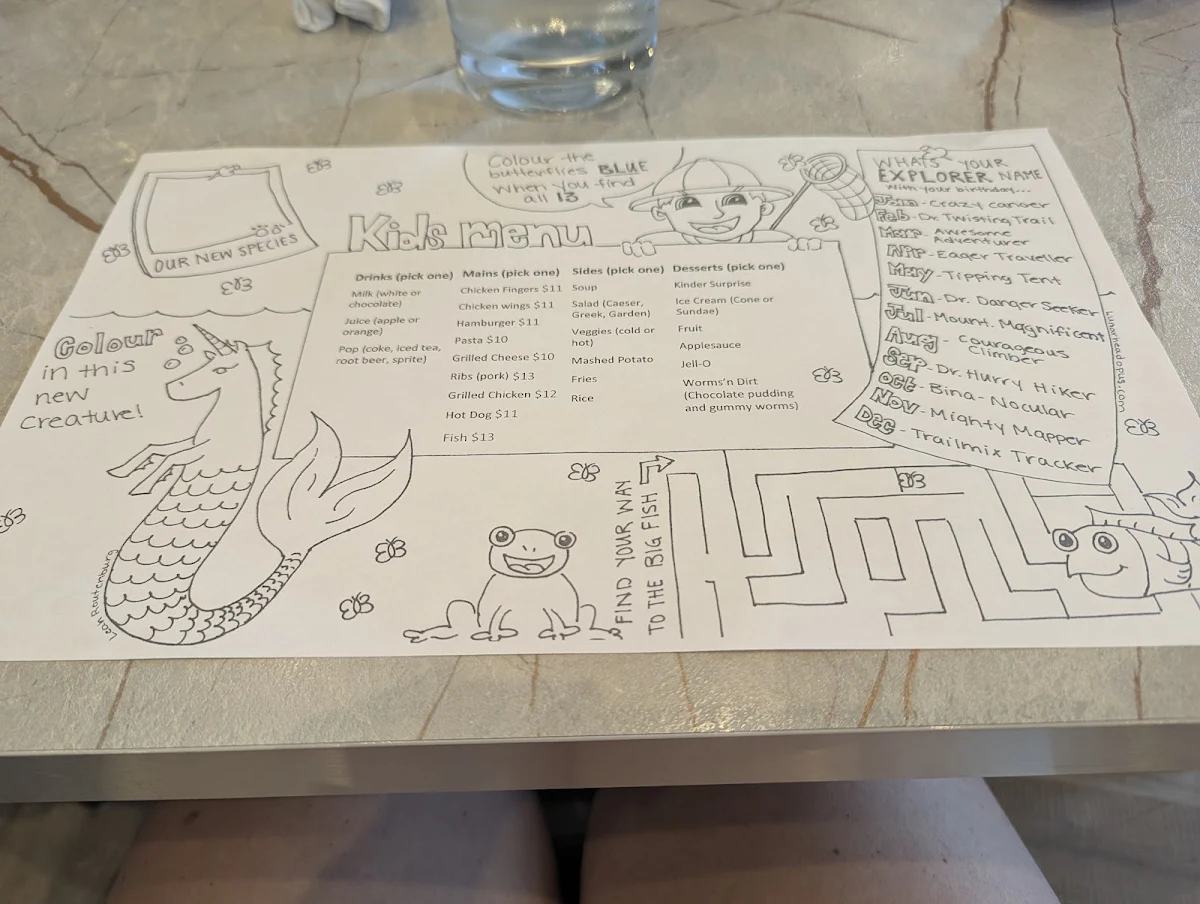 Colour the
butterflies BLUE
when you find
all 13
Kids menu
OUR NEW SPECIES
Colour
in this
new
creature!
Leah Routenburg
Drinks (pick one)
Milk (white or
chocolate)
Juice (apple or
orange)
Pop (coke, iced tea,
root beer, sprite)
Mains (pick one)
Chicken Fingers $11
Chicken wings $11
Hamburger $11
Pasta $10
Grilled Cheese $10
Ribs (pork) $13
Grilled Chicken $12
Hot Dog $11
Fish $13
Sides (pick one)
Soup
Salad (Caeser,
Greek, Garden)
Veggies (cold or
hot)
Mashed Potato
Fries
Rice
Desserts (pick one)
Kinder Surprise
Ice Cream (Cone or
Sundae)
Fruit
Applesauce
Jell-O
Worms'n Dirt
(Chocolate pudding
and gummy worms)
WHATS YOUR
EXPLORER NAME
With your birthday...
Jan - Crazy Canoer
Feb - Dr. Twisting Trail
Mar - Awesome
Adventurer
Apr - Eager Traveller
May - Tipping Tent
Jun - Dr. Danger Seeker
Jul - Mount. Magnificent
Aug - Courageous
Climber
Sep - Dr. Hurry Hiker
Oct - Bina-Nocular
Nov - Mighty Mapper
Dec - Trailmix Tracker
FIND YOUR WAY
TO THE BIG FISH